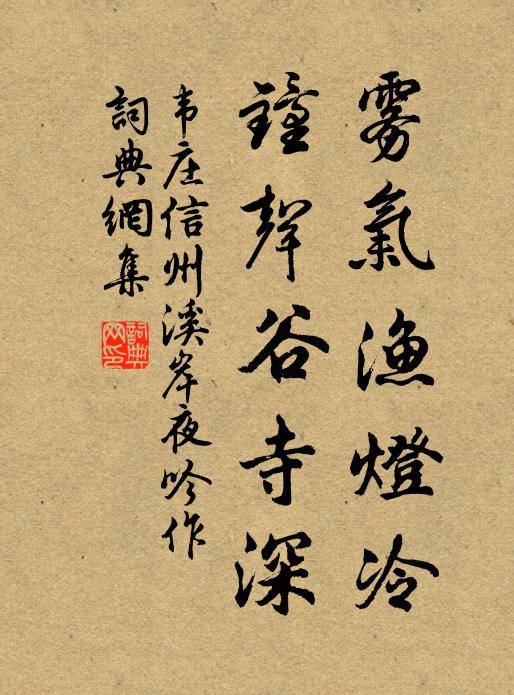 霧氣漁燈冷
鐘聲谷寺深
韦庄信州溪岸夜吟作
詞典網集
詞典网印